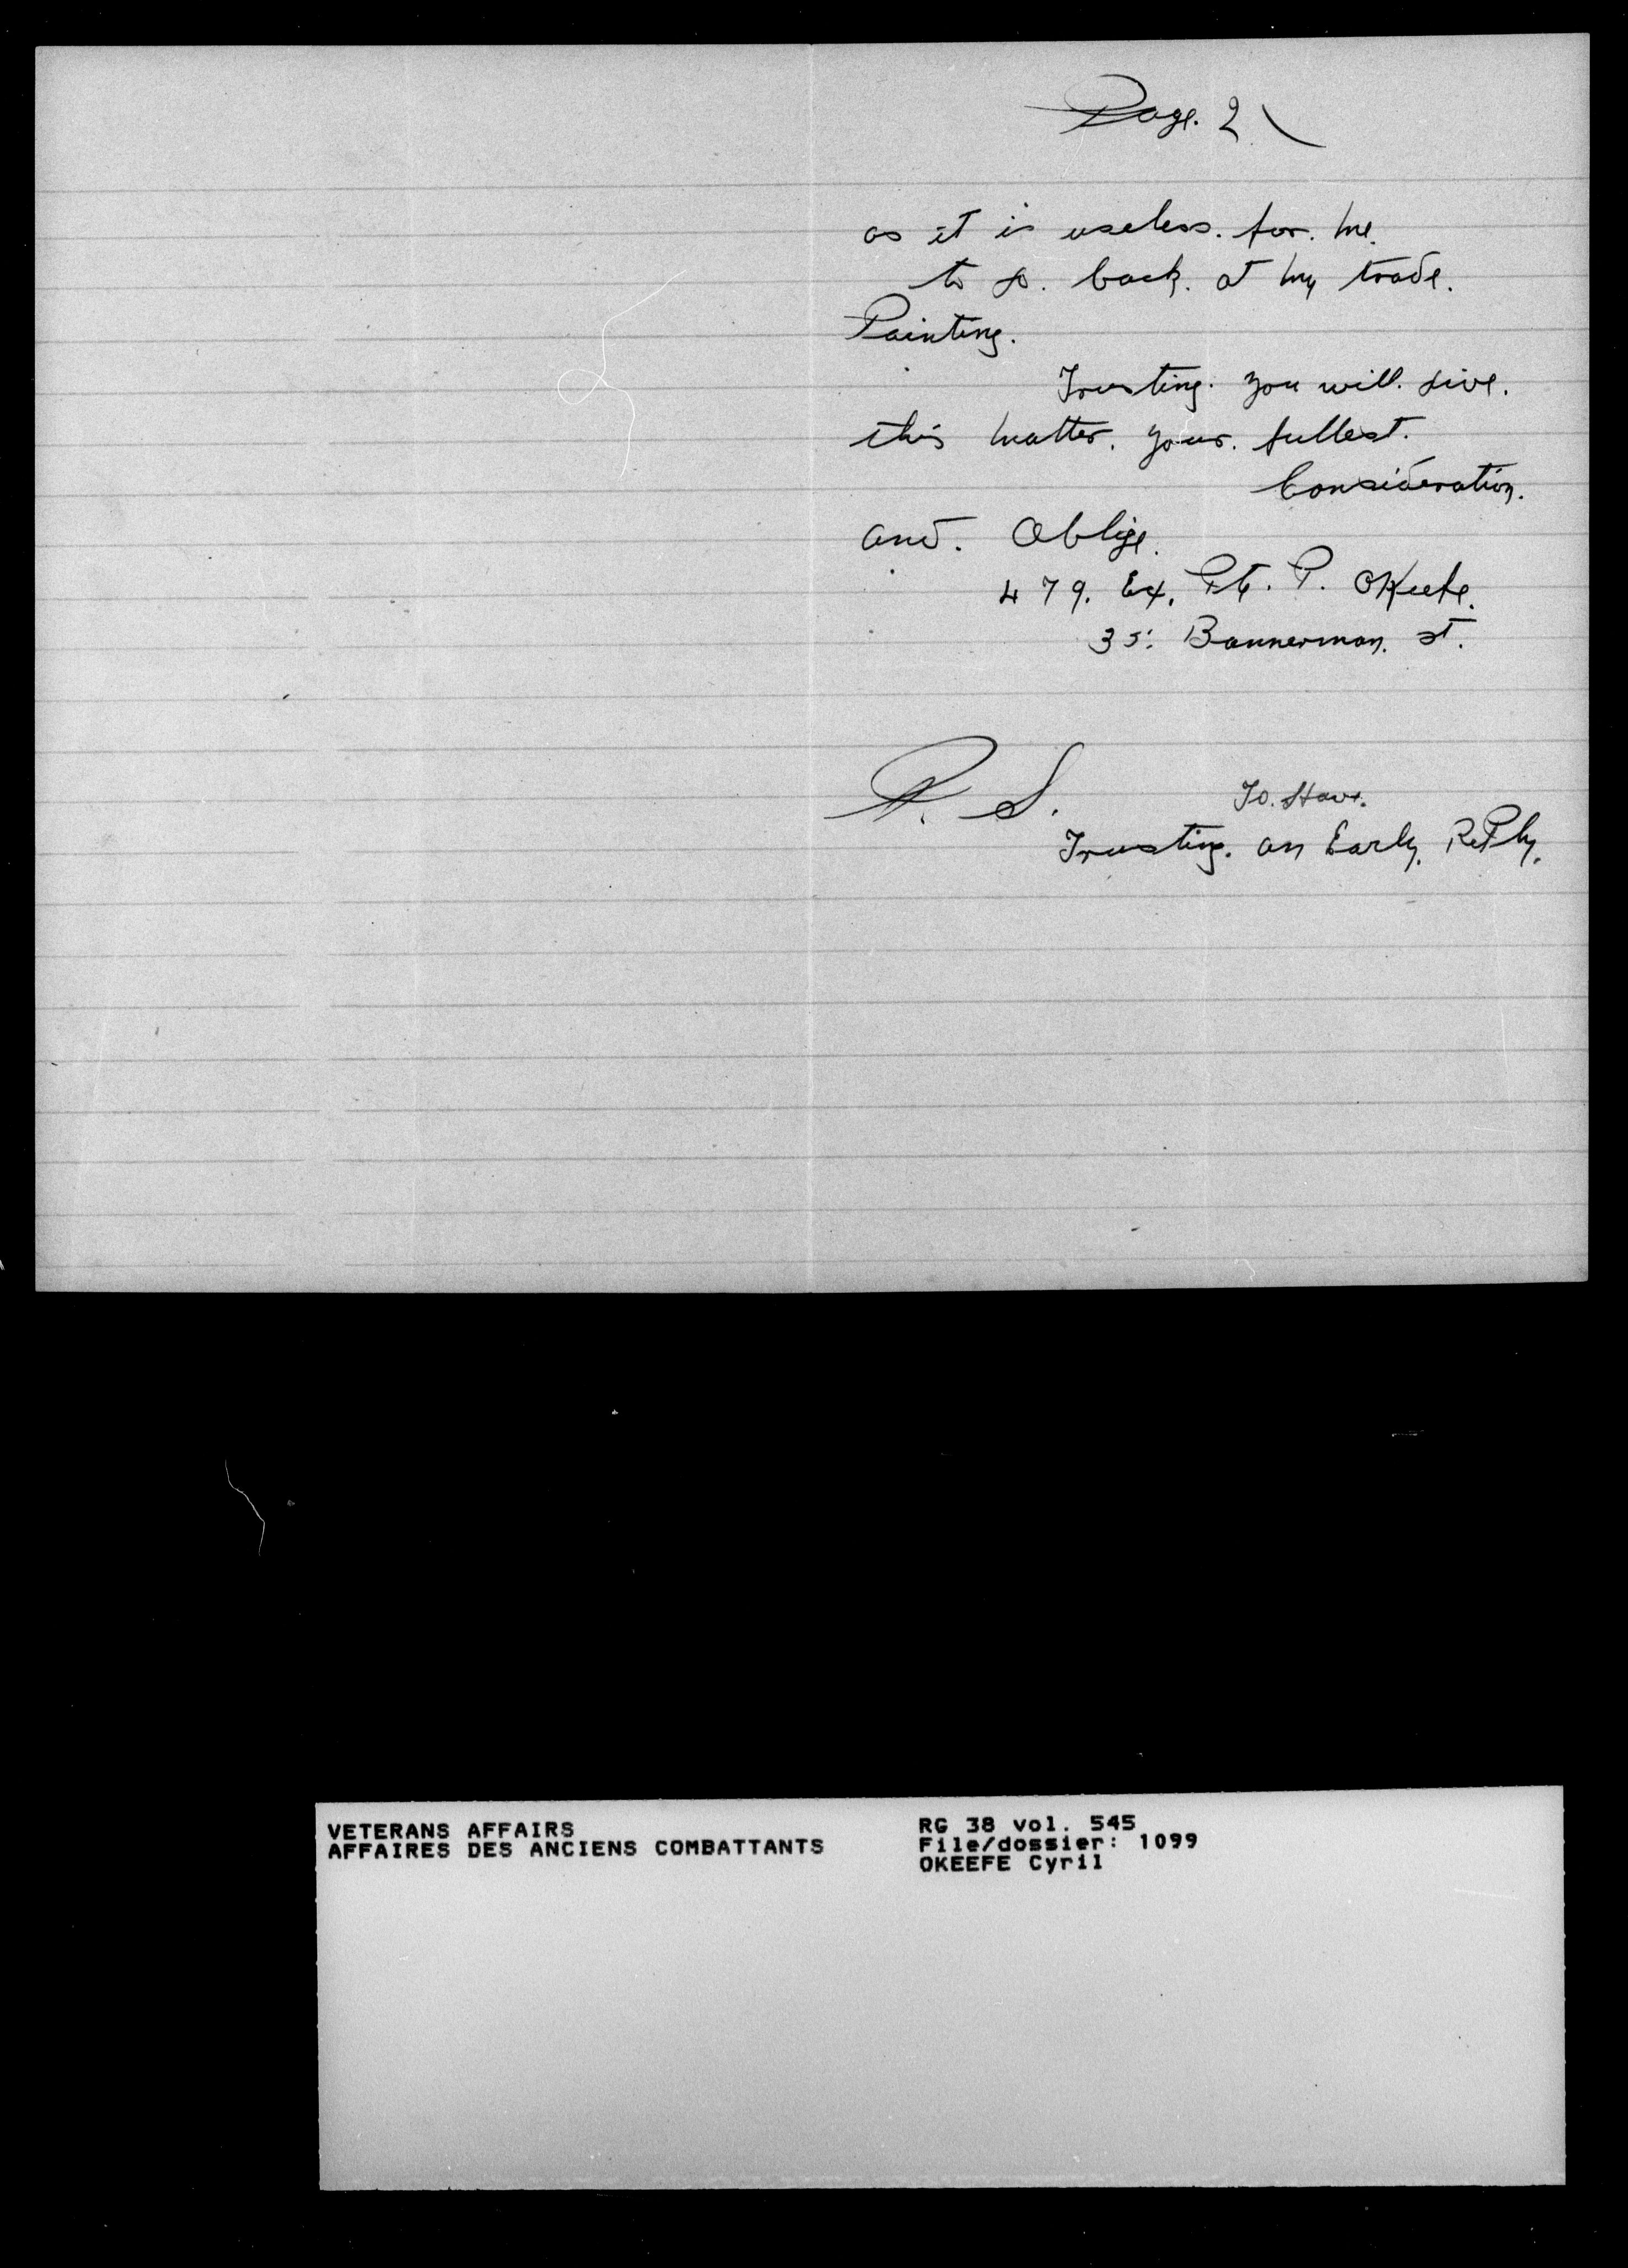 Page. 2
as it is useless. for. me.
to go. back. at my trade.
Painting.
Trusting. you will. give.
this matter. your. fullest.
Consideration.
and. Oblige.
479. Ex. Pte. P. OKeefe.
35. Bannerman. st.
P. S.
To. Have.
Trusting. an Early. RePly.
VETERANS AFFAIRS
AFFAIRES DES ANCIENS COMBATTANTS
RG 38 vol. 545
File/dossier: 1099
OKEEFE Cyril